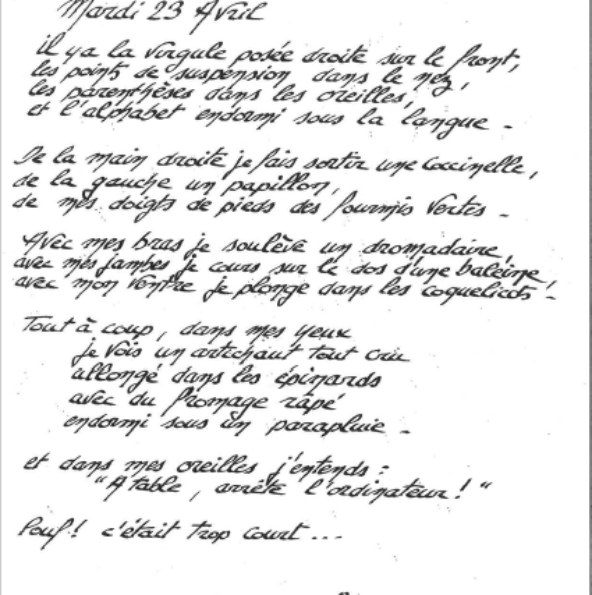 Mardi 23 Avril
il y a la virgule posée droite sur le front,
les points de suspension dans le nez,
les parenthèses dans les oreilles,
et l'alphabet endormi sous la langue -
De la main droite je fais sortir une coccinelle,
de la gauche un papillon,
de mes doigts de pieds des fourmis vertes -
Avec mes bras je soulève un dromadaire,
avec mes jambes je cours sur le dos d'une baleine,
avec mon ventre je plonge dans les coquelicots -
Tout à coup, dans mes yeux
je vois un artichaut tout cru
allongé dans les épinards
avec du fromage râpé
endormi sous un parapluie -
et dans mes oreilles j'entends :
"A table, arrête l'ordinateur ! "
Pouf! c'était trop court...